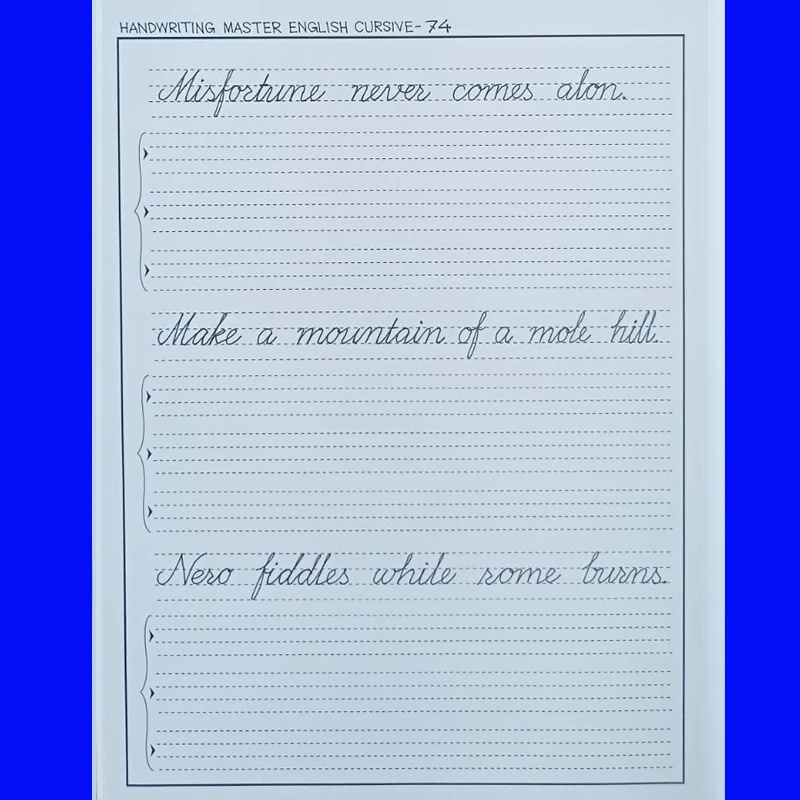 HANDWRITING MASTER ENGLISH CURSIVE-74
Misfortune never comes alon.
Make a mountain of a mole hill.
Nero fiddles while rome burns.